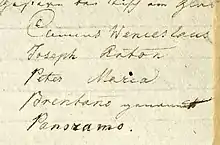 Clemens Wenceslaus
Joseph Anton
Peter Maria
Brentano genannt
Panoramo.